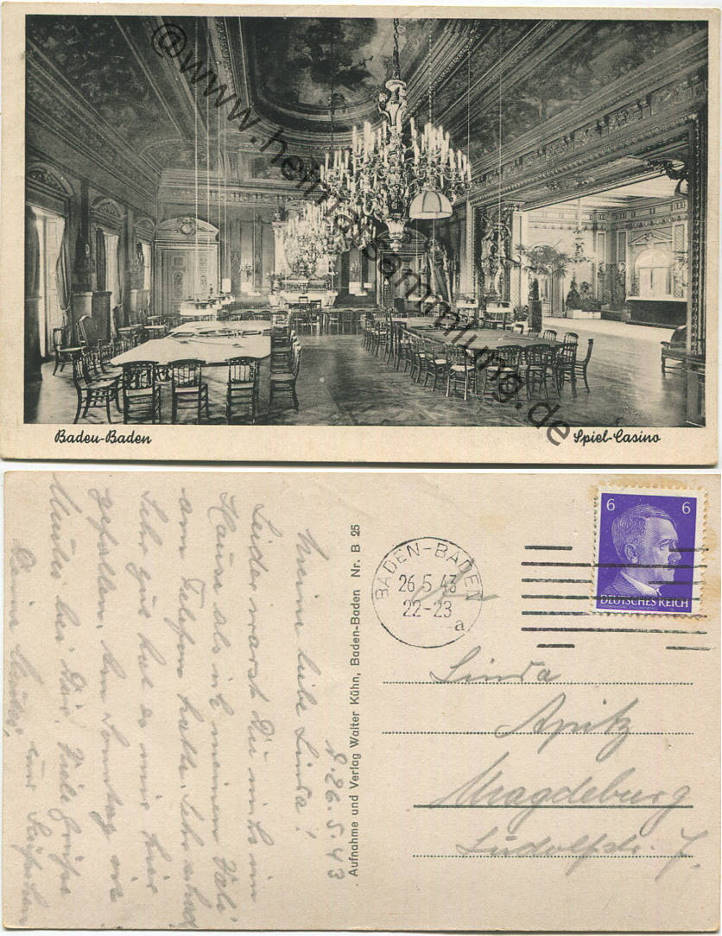 ©www.heimatsammlung.de
Baden-Baden
Spiel-Casino
6 6
DEUTSCHES REICH
BADEN-BADEN
26.5.43
22-23
a
Linda
Apitz
Magdeburg
Ludolfstr. 7.
Aufnahme und Verlag Walter Kühn, Baden-Baden Nr. B 25
d. 26.5.43
Meine liebe Linda!
Leider warst Du nicht im
Hause als ich meinen Vati
am Telefon hatte. Sehr schad
Sehr gut hat es mir hier
gefallen. Am Sonntag
Mutti bei Dir. Viele Grüße
Deine